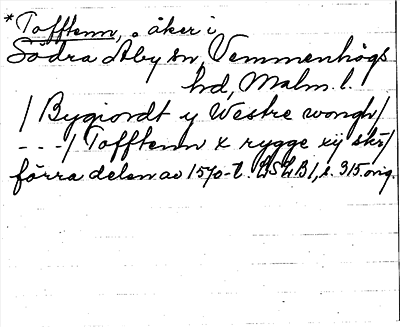 *Tofftenn, åker i
Södra Åby sn, Vemmenhögs
hd, Malm. l.
/Bygiordt y Westre wongh/
---/ Tofftenn x rygge xij skr/
förra delen av 1570-t. LSLB 1, s. 315 orig.